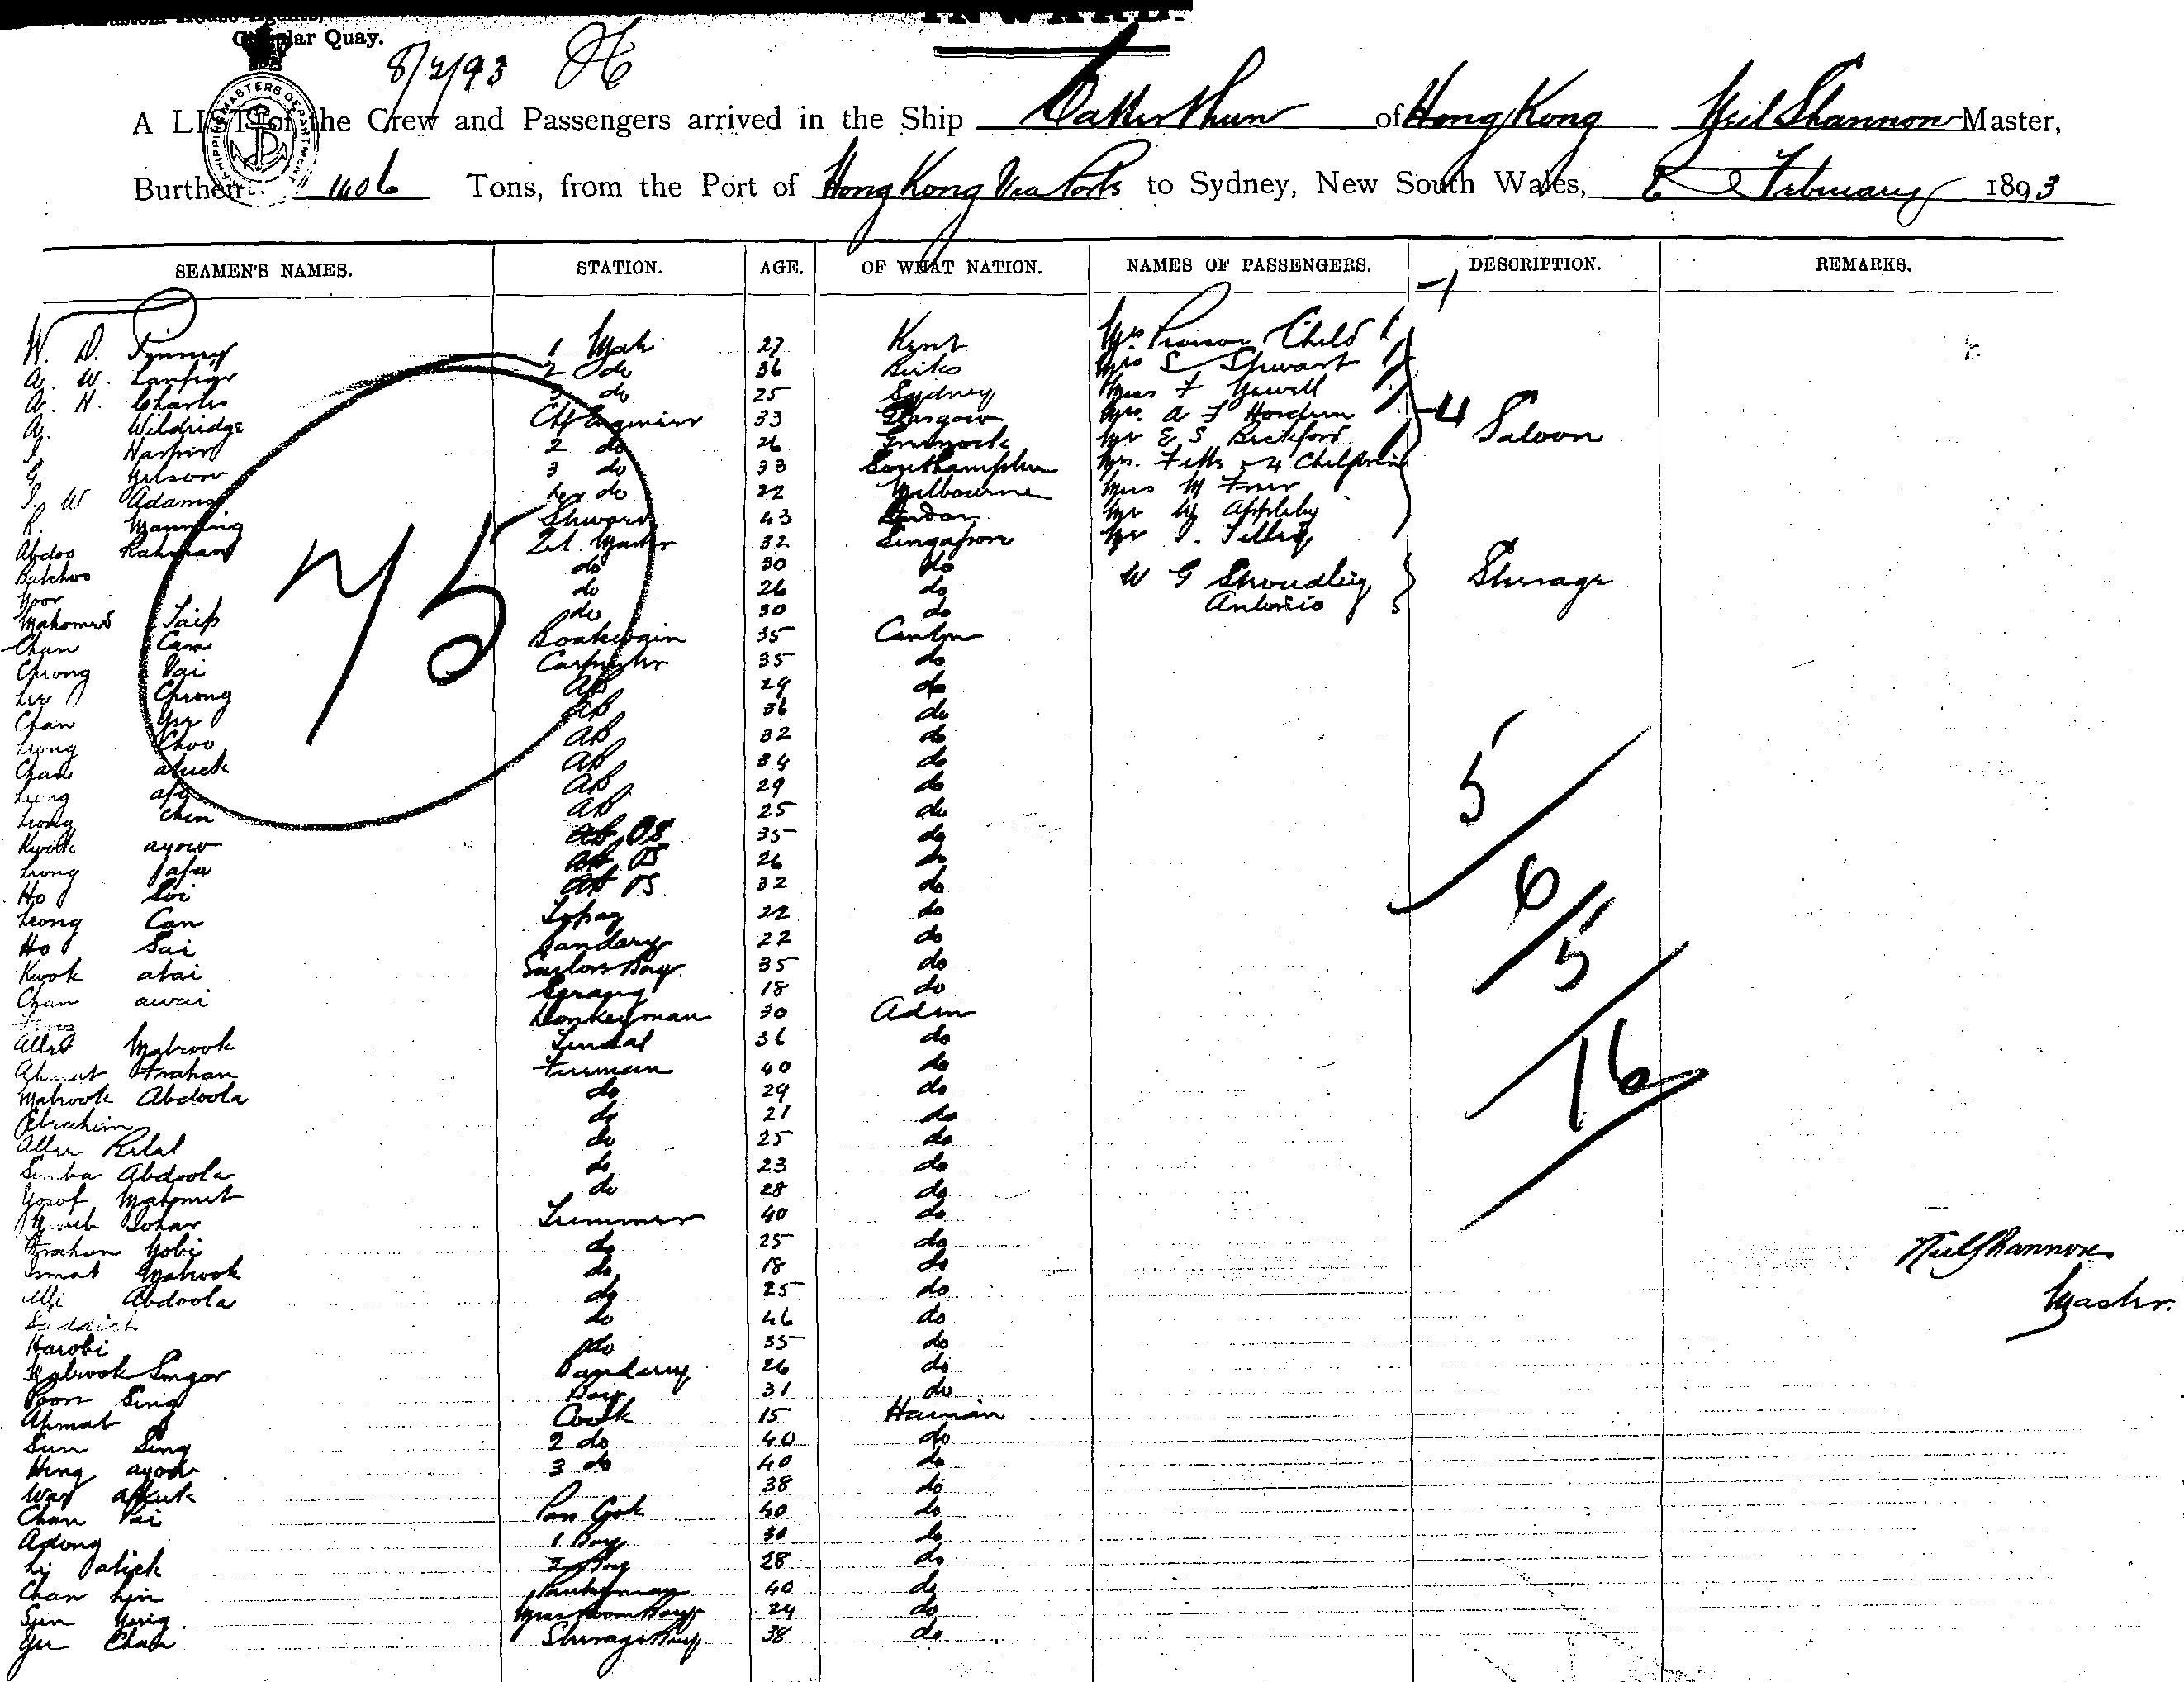 Custom House Agents,
Circular Quay.
INWARD.
8/2/93
SHIPPING MASTERS DEPARTMENT
A LIST of the Crew and Passengers arrived in the Ship Catterthun of Hong Kong Neil Shannon Master,
Burthen 1406 Tons, from the Port of Hong Kong Via Ports to Sydney, New South Wales, 8 February 1893
SEAMEN'S NAMES. STATION. AGE. OF WHAT NATION. NAMES OF PASSENGERS. DESCRIPTION. REMARKS.
W. D. 1 Mate 27 Kent Mrs Pearson Child 1
A. W. 2 do 36 Mrs S Stewart
A. H. Charles 3 do 25 Sydney Miss F Yewell
A. Wildridge Chf Engineer 33 Glasgow Mrs A F Hordern 4 Saloon
Harper 2 do 26 Greenock Mr E S Bickford
G Gilson 3 do 33 Southampton Mrs. 4 Children
W Adams do 22 Melbourne Miss M
R. Manning Steward 43 London Mr Appleby
Abdoo Rahman Qt Master 32 Singapore Mr
do 30 do W G
Noor do 26 do Steerage
Mahomed Taip do 30 do Antonio
Chan Can Boatswain 35 Canton
Cheong Vai Carpenter 35 do
Lee Cheong AB 29 do
Chan Yee AB 36 do
Leong Choo AB 32 do
Chan aluck AB 34 do
Leong AB 29 do
Leong Chin AB 25 do
Kwok ayow OS 35 do
Leong afu OS 26 do
Ho Soi OS 32 do
Leong Can Topaz 22 do
Ho Sai Bandary 22 do
Kwok atai Sailors Boy 35 do
Chan awai Serang 18 do
Feroz Donkeyman 30 Aden
Allee Mabrook Tindal 36 do
Ahmat Frahan Fireman 40 do
Mabrook Abdoola do 29 do
Ebrahim do 21 do
Allee Belal do 25 do
Abdoola do 23 do
Yosof Mahomet do 28 do
Johar Trimmer 40 do
Frahan Yobi do 25 do
Ismat Mabrook do 18 do
Alli Abdoola do 25 do
do 46 do
Harobi do 35 do
Mabrook Bandary 26 do
Poon Sing Boy 31 do
Ahmat Cook 15 Hainan
Sun Sing 2 do 40 do
Hing ayow 3 do 40 do
38 do
Chan Pai Pan Cook 40 do
Adong 1 Boy 30 do
Li 2 Boy 28 do
Chan hin Pantryman 40 do
Sun Messroom Boy 24 do
Yee Chan Steerage Boy 38 do
75
5
6
5
16
Neil Shannon
Master.